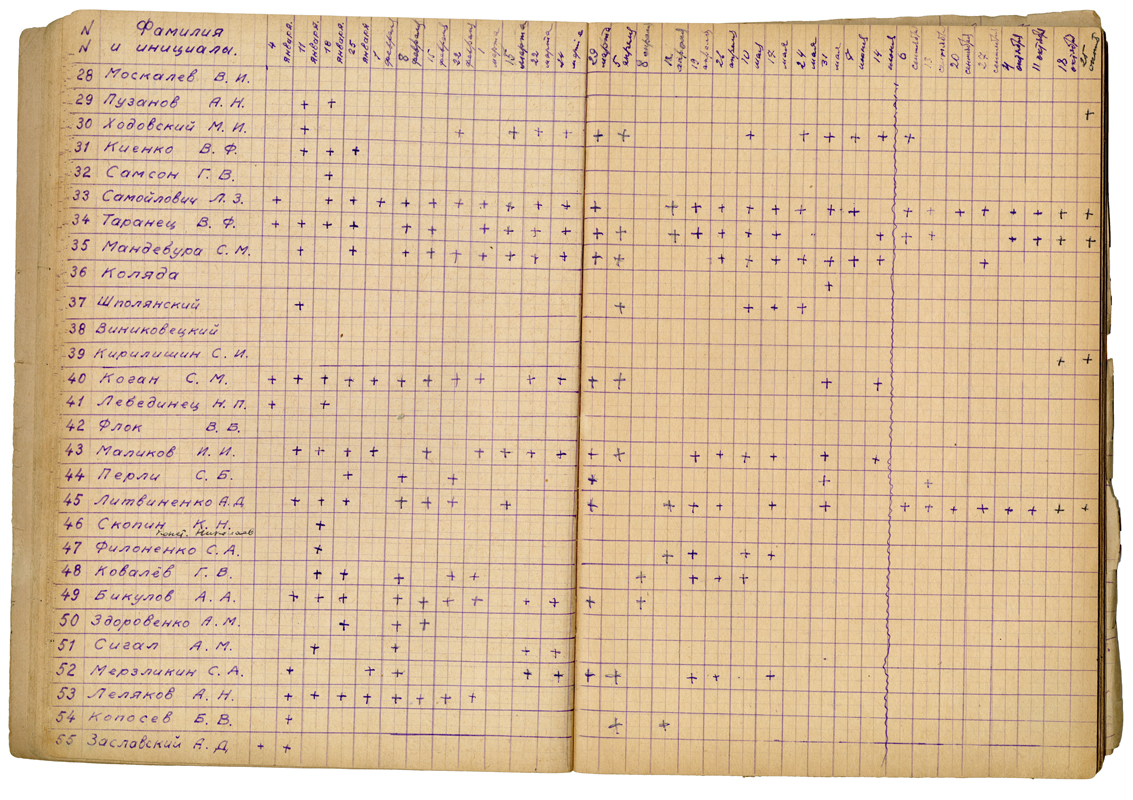 N Фамилия
N и инициалы.
4 января 11 января 18 января 25 января 1 февраля 8 февраля 15 февраля 22 февраля 1 марта 15 марта 22 марта 29 марта 5 апреля 8 апреля 12 апреля 19 апреля 26 апреля 10 мая 17 мая 24 мая 31 мая 7 июня 14 июня 6 сентября 13 сентября 20 сентября 27 сентября 4 октября 11 октября 18 октября 25
28 Москалев В. И.
29 Пузанов А. Н. + + +
30 Ходовский М. И. + + + + + + + + + + + + +
31 Киенко В. Ф. + + +
32 Самсон Г. В. +
33 Самойлович Л. З. + + + + + + + + + + + + + + + + + + + + + + + + + + + +
34 Таранец В. Ф. + + + + + + + + + + + + + + + + + + + + + + + + +
35 Мандевура С. М. + + + + + + + + + + + + + + + + + + +
36 Коляда +
37 Шполянский + + + + +
38 Виниковецкий
39 Кирилишин С. И. + +
40 Коган С. М. + + + + + + + + + + + + + + +
41 Лебединец Н. П. + +
42 Флок В. В.
43 Маликов И. И. + + + + + + + + + + + + + + + + + +
44 Перли С. Б. + + + + + +
45 Литвиненко А. Д + + + + + + + + + + + + + + + + + + + + + +
46 Скопин К. Н. +
47 Филоненко С. А. + + + + +
48 Ковалёв Г. В. + + + + + + + + +
49 Бикулов А. А. + + + + + + + + + + +
50 Здоровенко А. М. + + +
51 Сигал А. М. + + + +
52 Мерзликин С. А. + + + + + + + + + +
53 Леляков А. Н. + + + + + + + +
54 Копосев Б. В. + + +
55 Заславский А. Д + +